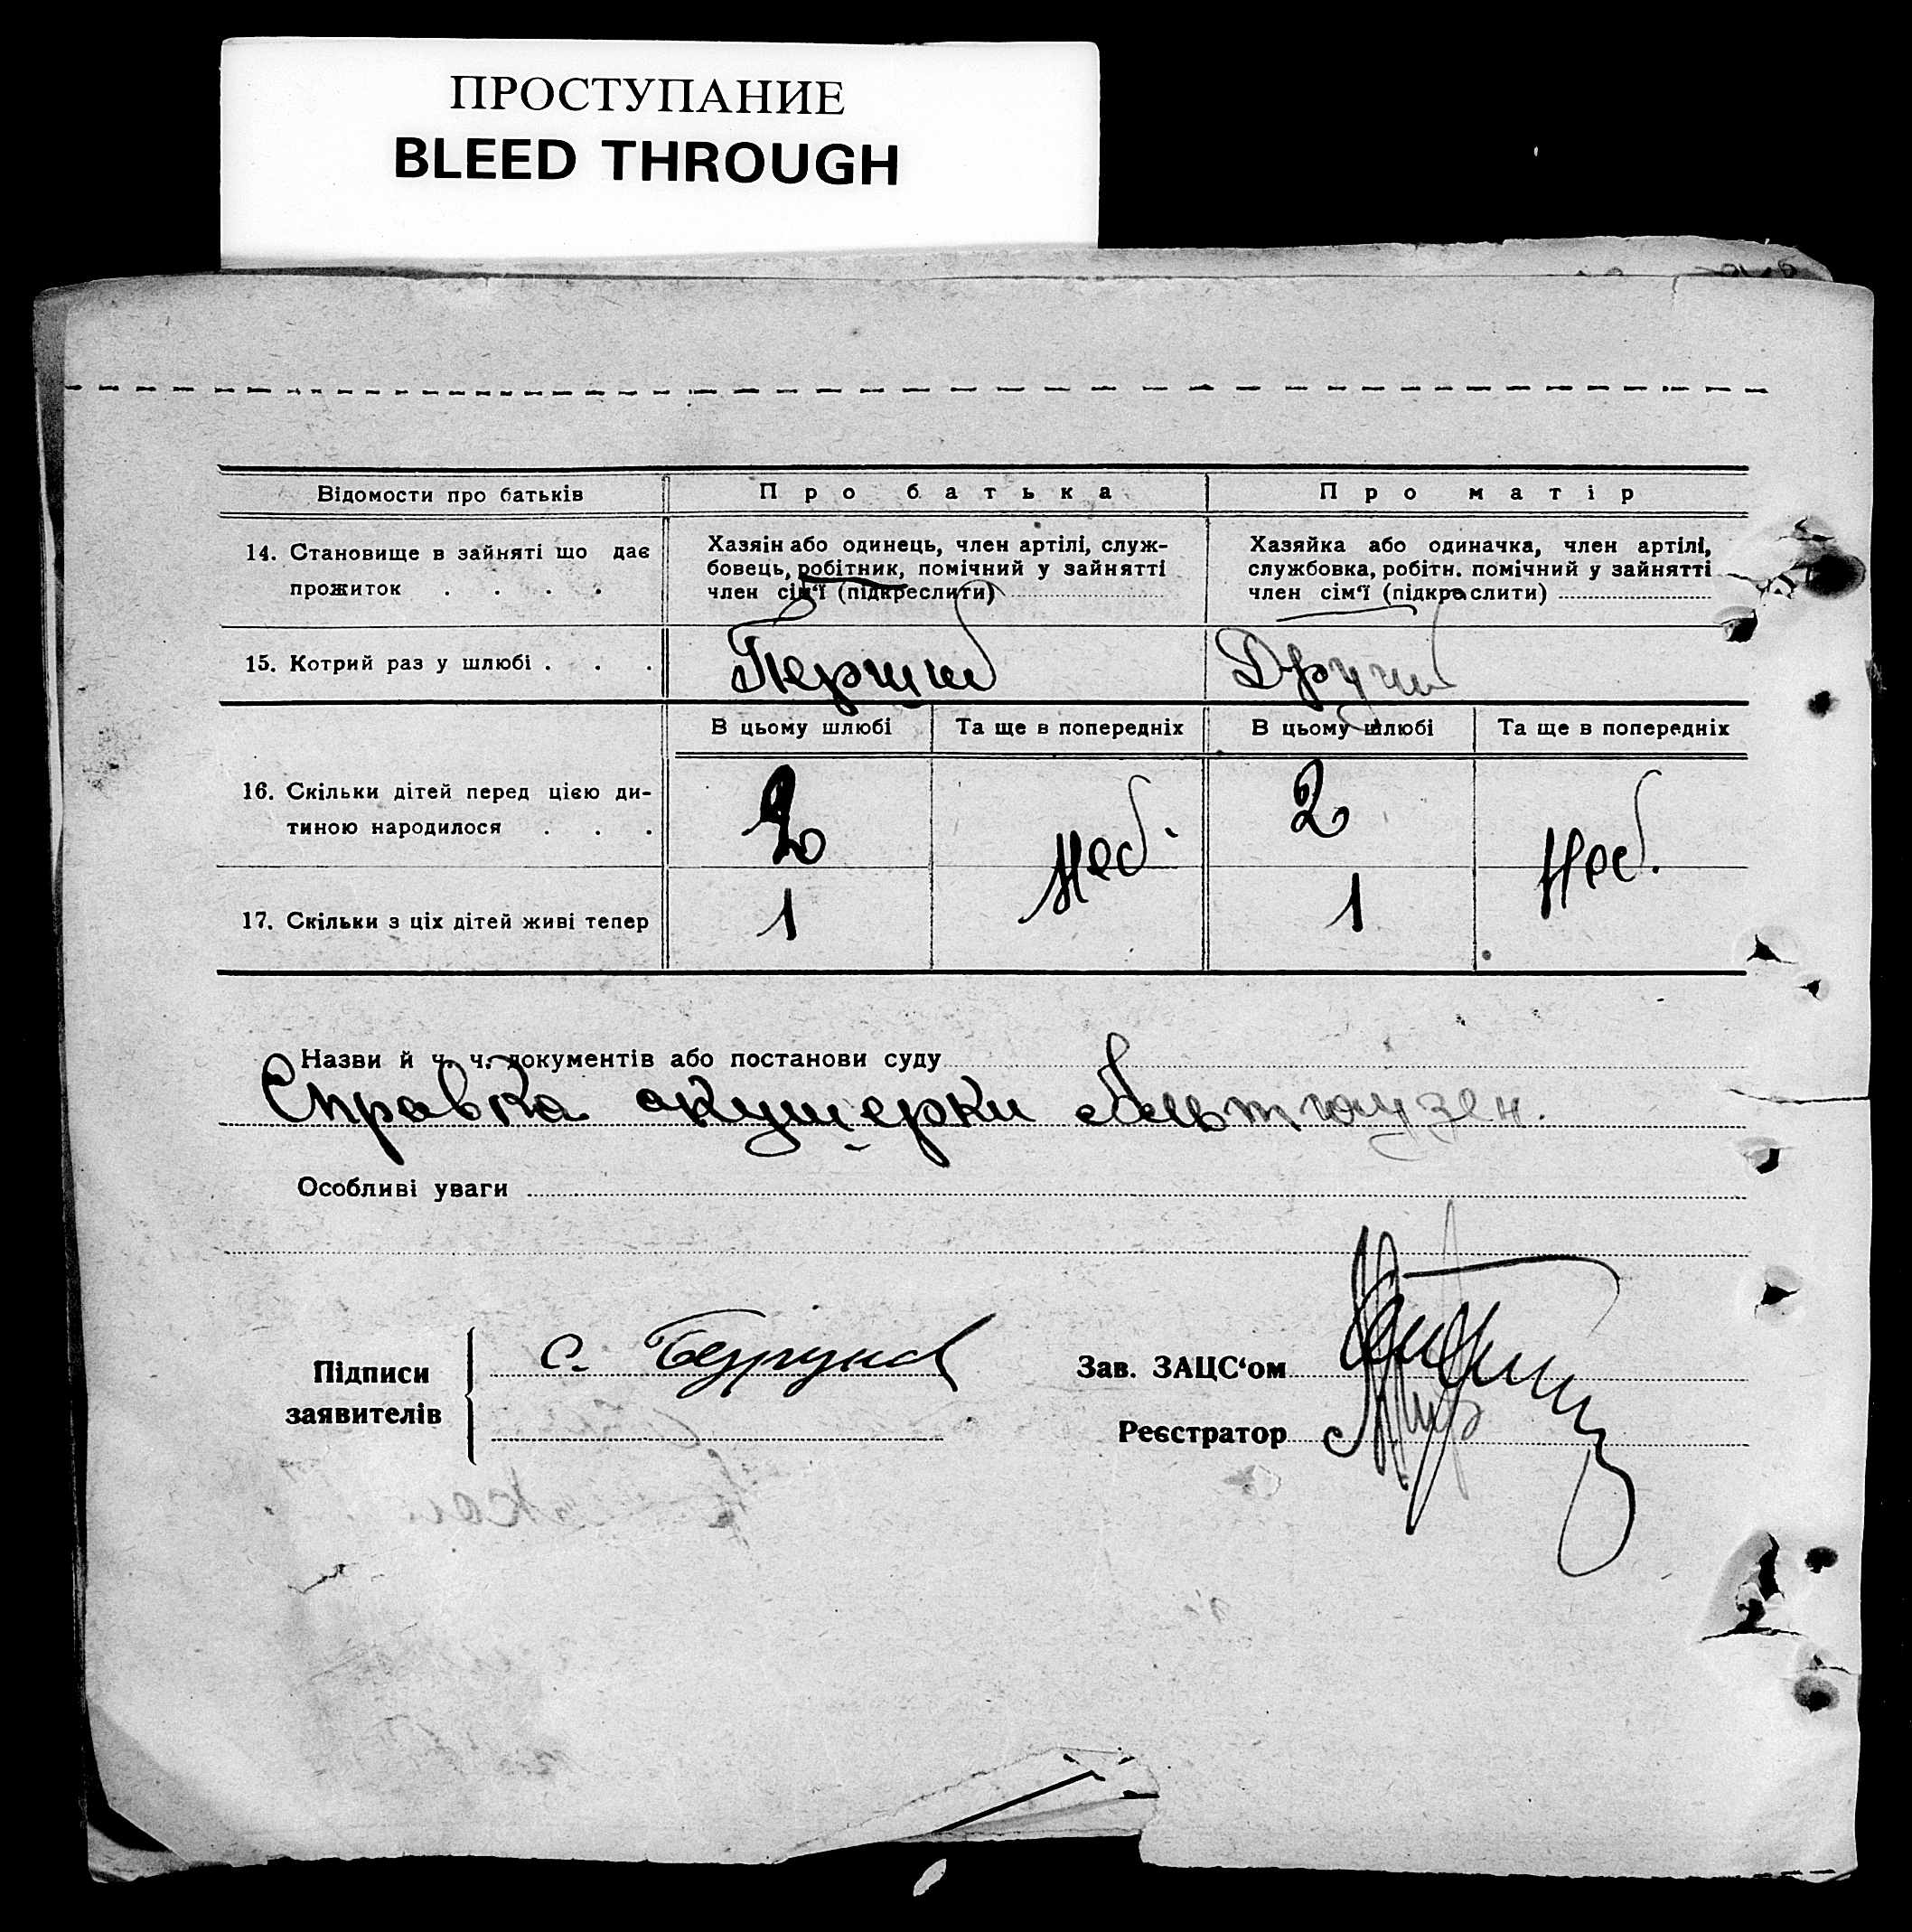 ПРОСТУПАНИЕ
BLEED THROUGH
Відомости про батьків
Про батька
Про матір
14. Становище в зайняті що дає
прожиток . . . .
Хазяін або одинець, член артілі, служ-
бовець, робітник, помічний у зайнятті
член сім'ї (підкреслити)
Хазяйка або одиначка, член артілі,
службовка, робітн. помічний у зайнятті
член сім'ї (підкреслити)
15. Котрий раз у шлюбі . . .
Перший
Другий
В цьому шлюбі
Та ще в попередніх
В цьому шлюбі
Та ще в попередніх
16. Скільки дітей перед цією ди-
тиною народилося . . .
2
2
17. Скільки з ціх дітей живі тепер
1
1
Назви й ч. ч. документів або постанови суду
Справка акушерки
Особливі уваги
Підписи
заявителів
С.
Зав. ЗАЦС'ом
Реєстратор